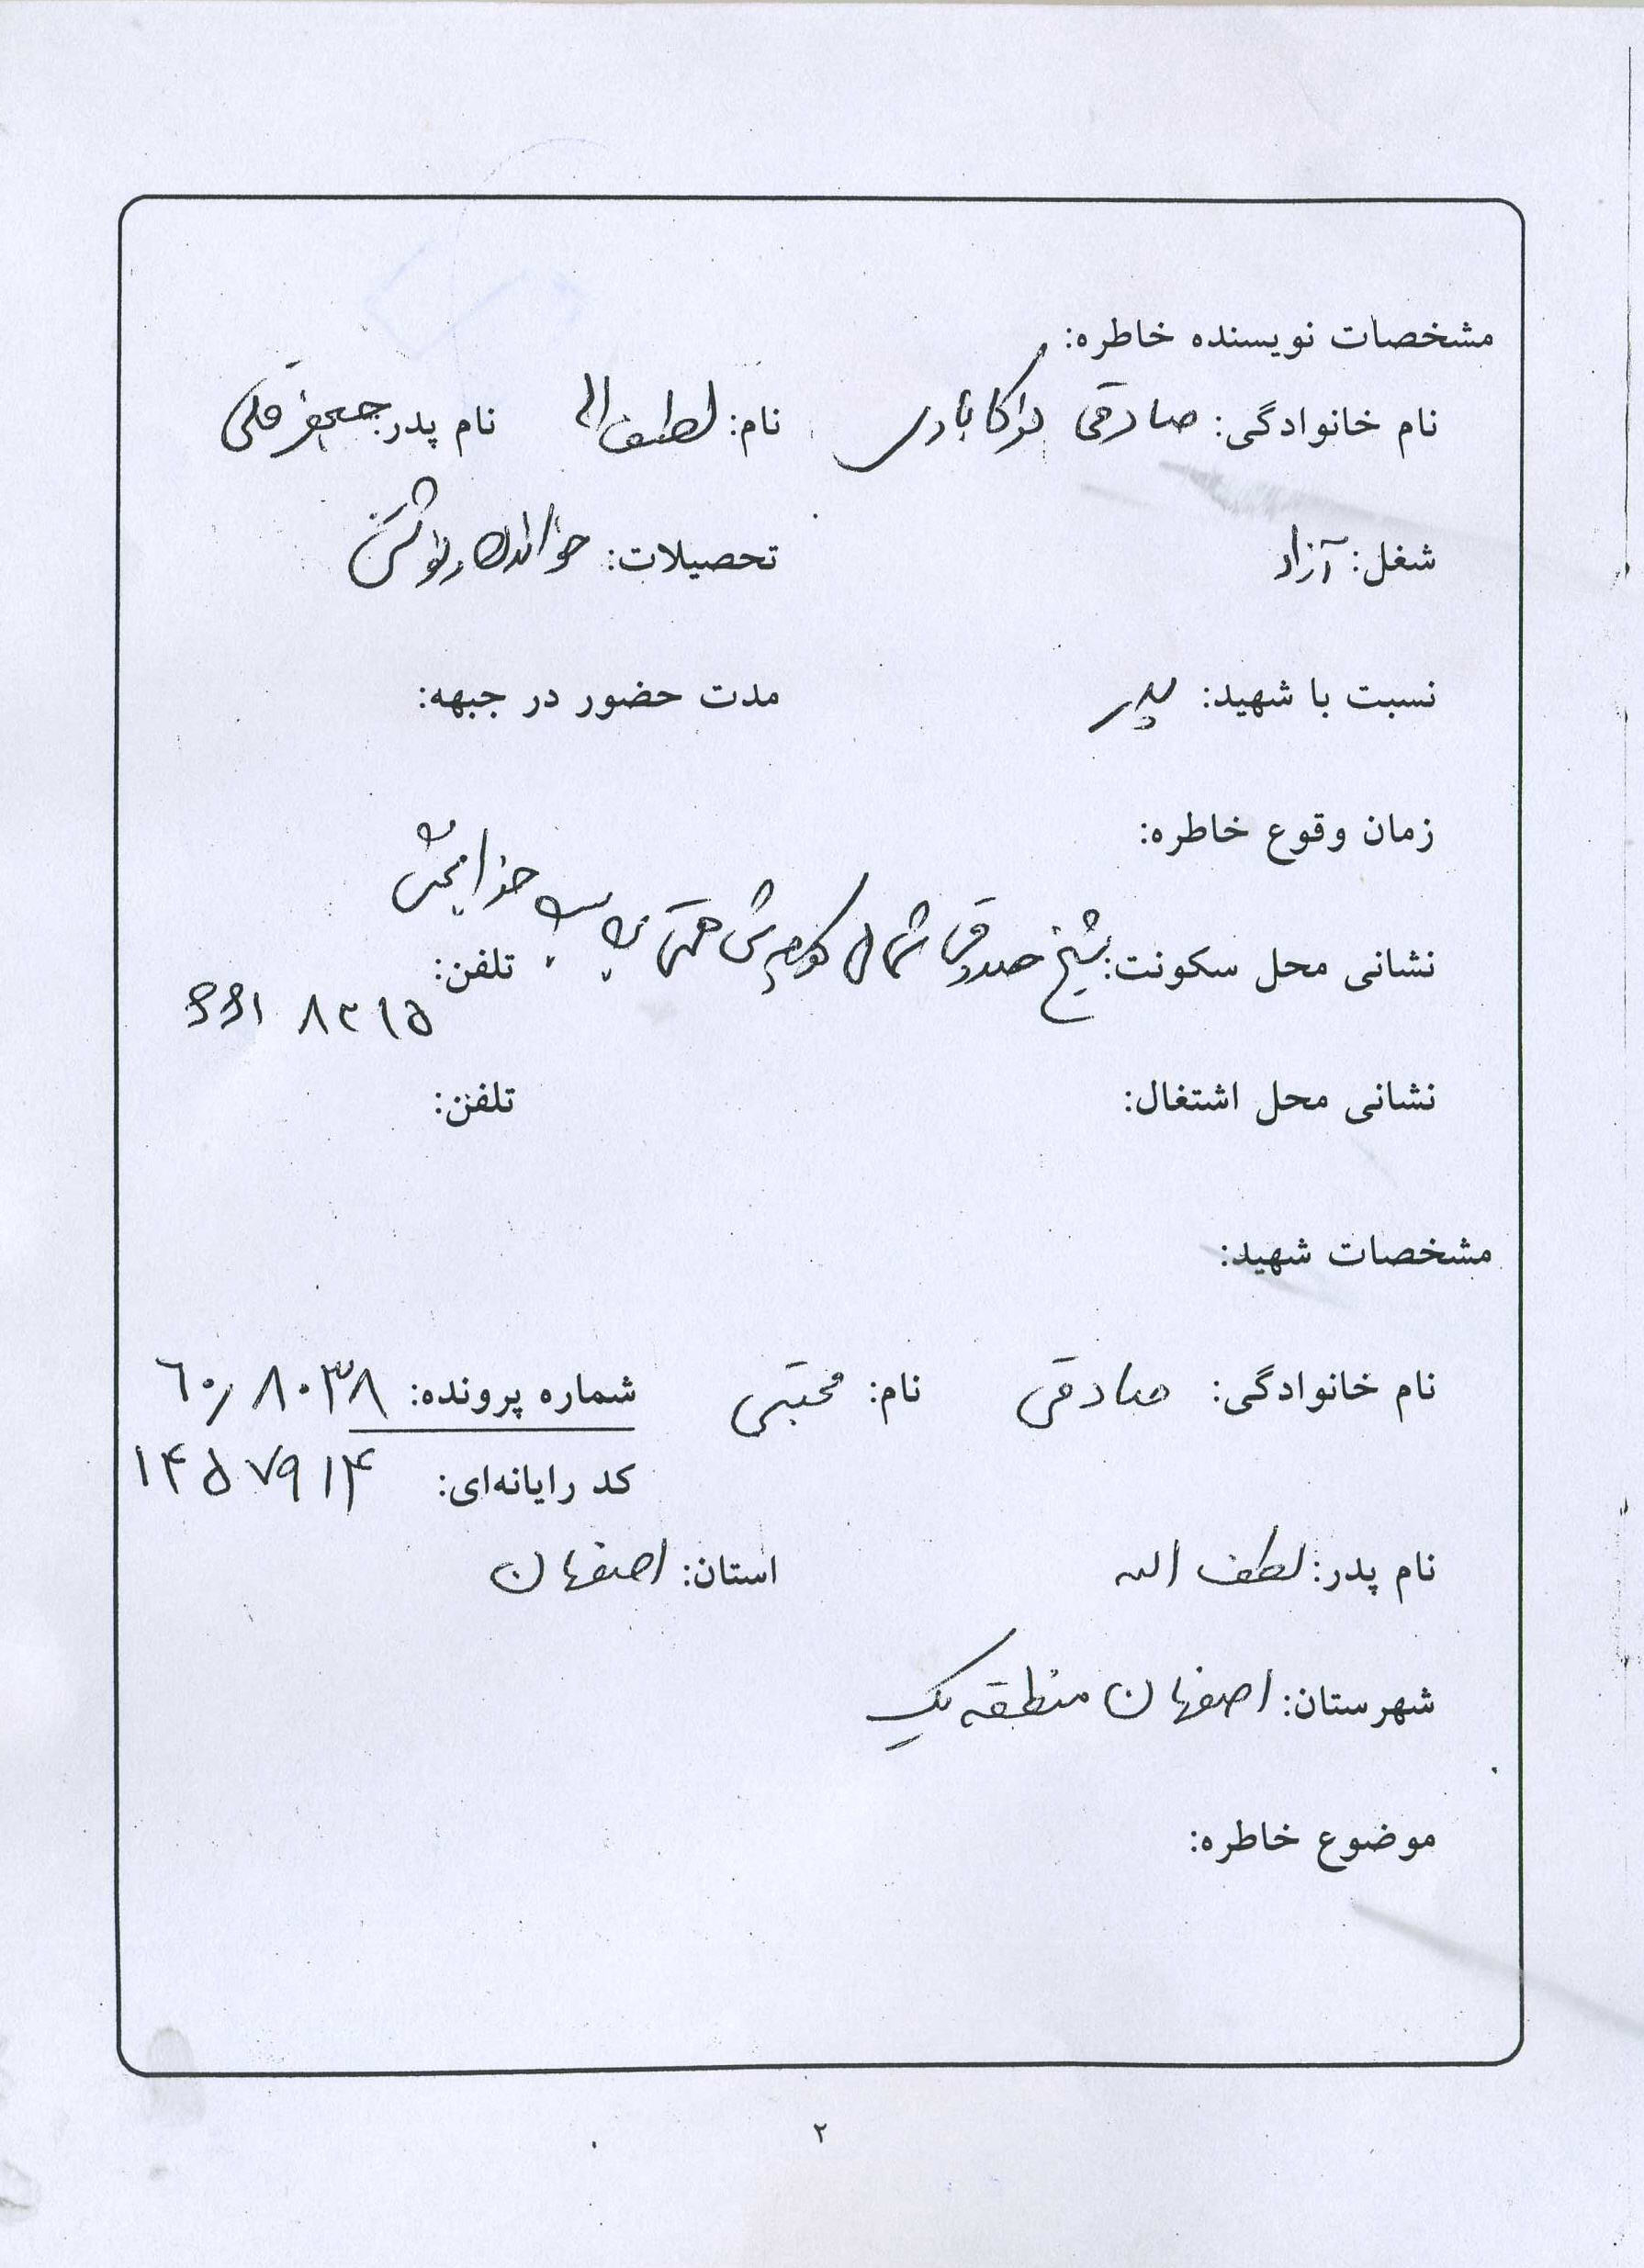 مشخصات نویسنده خاطره:
نام خانوادگی: صادقی نام: لطف اله نام پدر: جعفر قلی
شغل: آزاد تحصیلات: خواندن و نوشتن
نسبت با شهید: پدر مدت حضور در جبهه:
زمان وقوع خاطره:
نشانی محل سکونت: شیخ صدوق شمالی کوی بن بست خدابخشی تلفن:
نشانی محل اشتغال: تلفن:
مشخصات شهید:
نام خانوادگی: صادقی نام: مجتبی شماره پرونده: ۶۰/۸۰۳۸
کد رایانه‌ای: ۱۴۵۷۹۱۴
نام پدر: لطف اله استان: اصفهان
شهرستان: اصفهان منطقه یک
موضوع خاطره:
۲